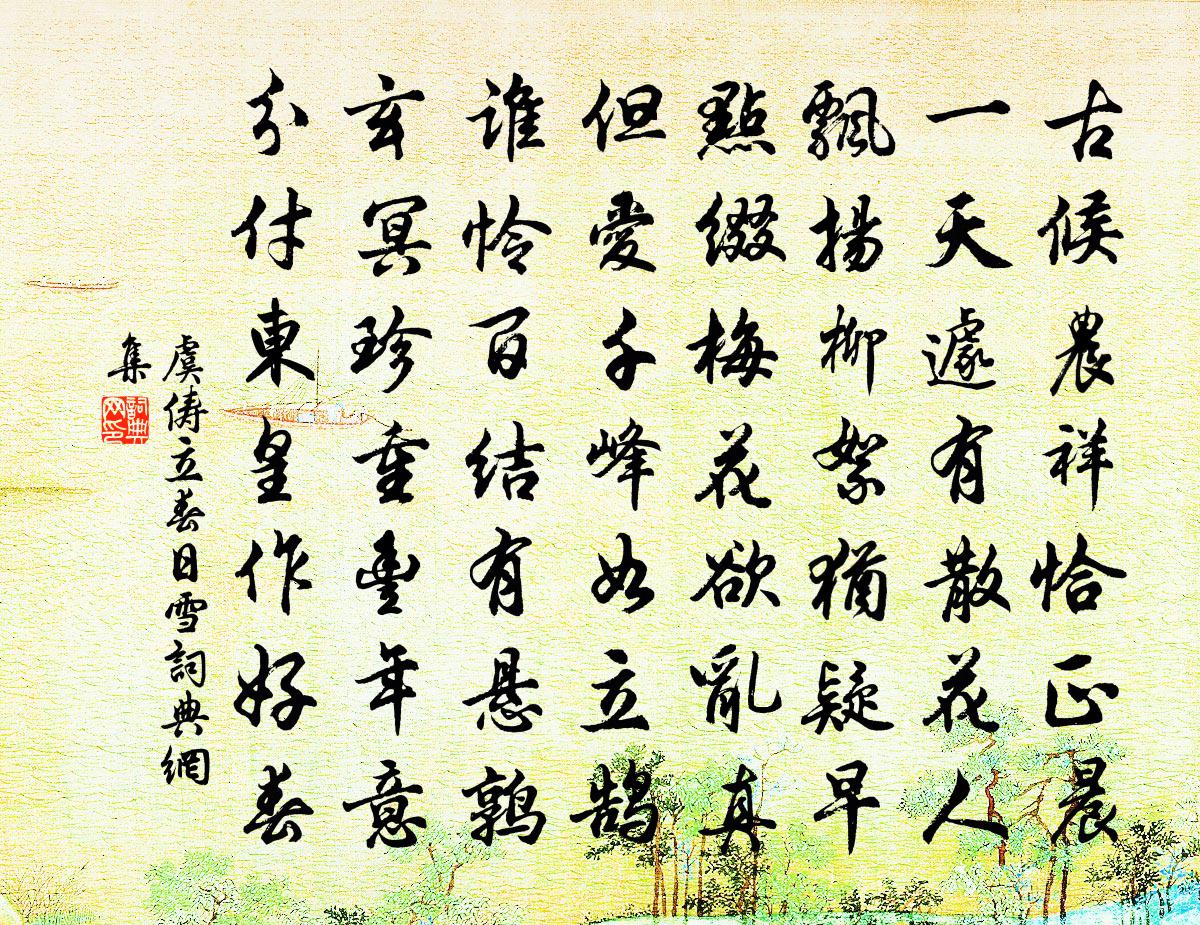 古候農祥恰正晨
一天遽有散花人
飄揚柳絮猶疑早
點綴梅花欲亂真
但愛千峰如立鵠
誰怜百结有悬鹑
玄冥珍重豐年意
分付東皇作好春
虞俦立春日雪詞典網
集
詞典网印